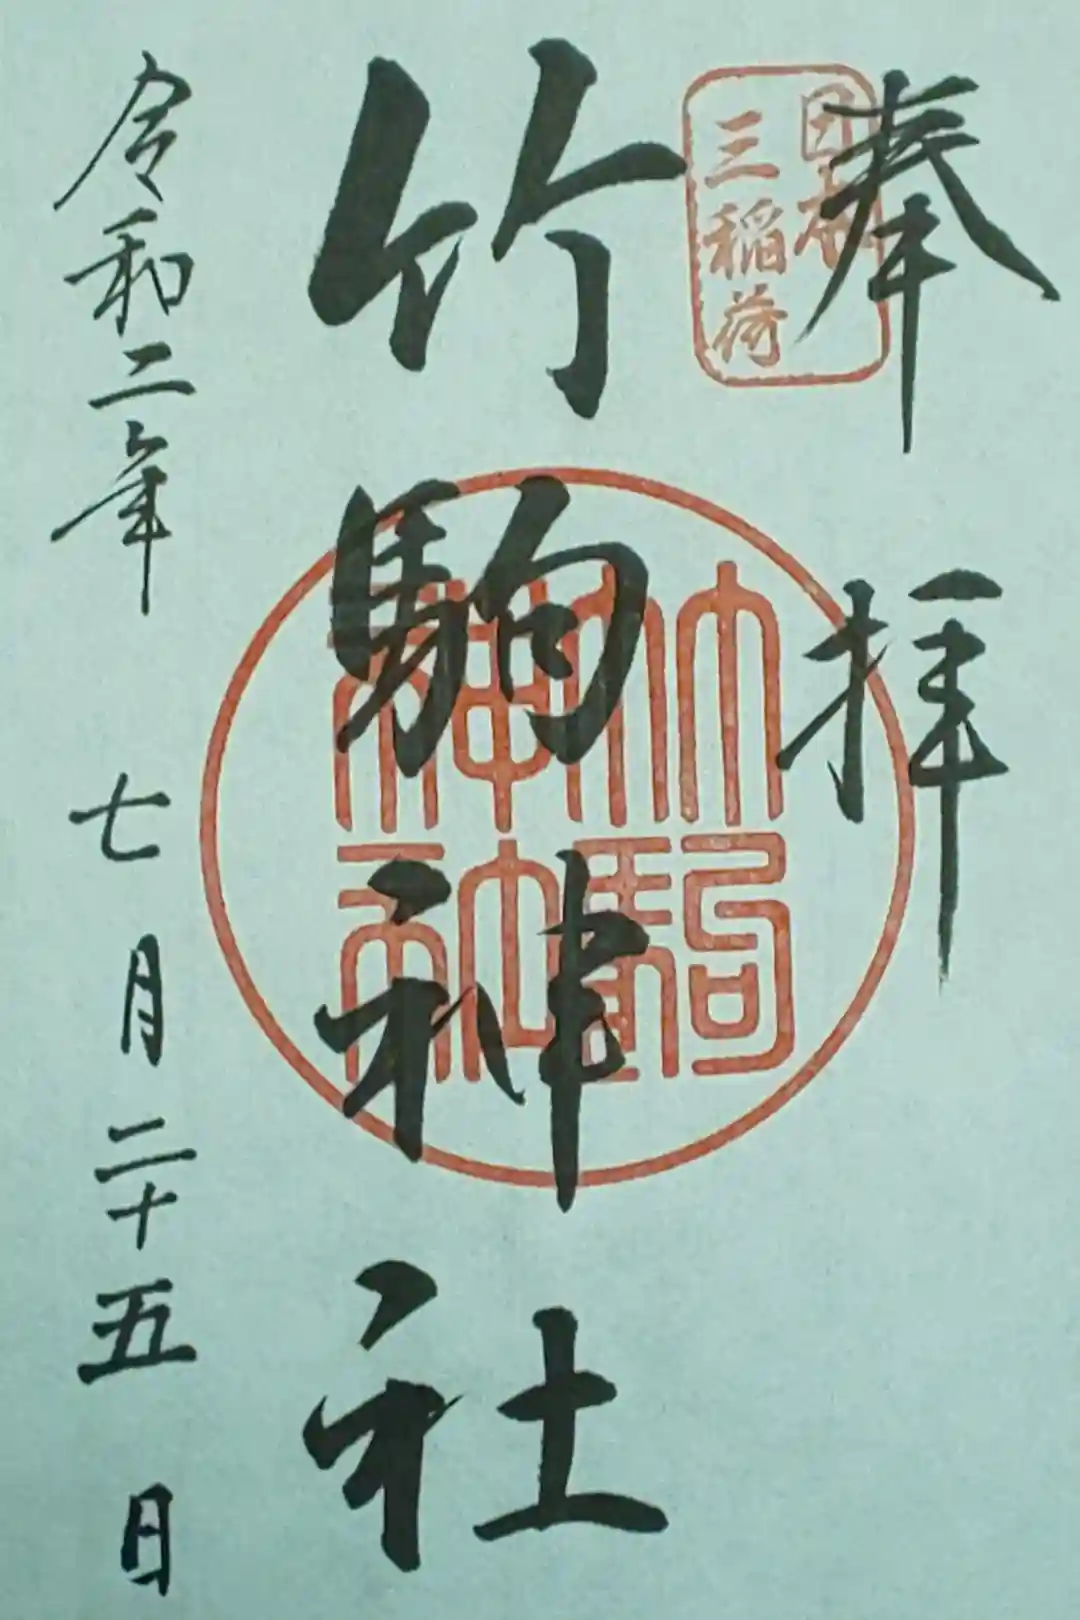 奉拝
日本
三稲荷
竹駒神社
竹駒
神社
令和二年
七月二十五日